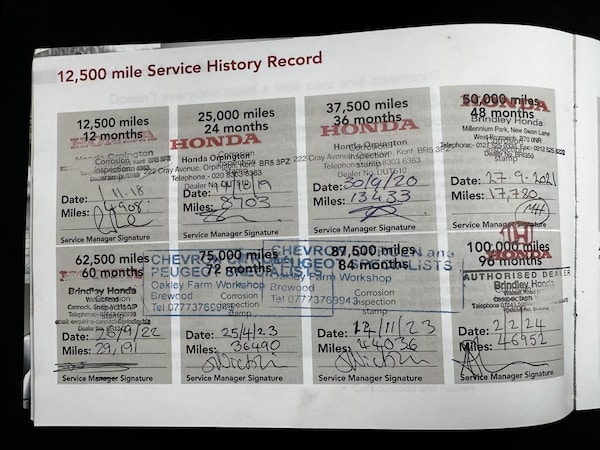 12,500 mile Service History Record
12,500 miles
12 months
HONDA
Honda Orpington
Corrosion
inspection
stamp
Date: 1.11.18
Miles: 4908
Service Manager Signature
25,000 miles
24 months
HONDA
Honda Orpington
222 Cray Avenue, Orpington, Kent BR5 3PZ
Telephone:- 020 8303 6363
Dealer No.
Date: 9/19
Miles: 8703
Service Manager Signature
37,500 miles
36 months
HONDA
Honda Orpington
222 Cray Avenue, Orpington, Kent. BR5 3PZ
Telephone:- 020 8303 6363
Dealer No. DU7610
stamp
Date: 30/9/20
Miles: 13433
Service Manager Signature
50,000 miles
48 months
HONDA
Brindley Honda
Millennium Park, New Swan Lane
West Bromwich, B70 0NR
stamp
Date: 27.9.2021
Miles: 17,780
MH
Service Manager Signature
62,500 miles
60 months
HONDA
Brindley Honda
Date: /9/22
Miles: 29,191
Service Manager Signature
75,000 miles
72 months
CHEVRON
PEUGEOT
Oakley Farm Workshop
Brewood
Corrosion
inspection
stamp
Date: 25/4/23
Miles: 36490
Service Manager Signature
87,500 miles
84 months
CHEVRON CITROEN and
PEUGEOT SPECIALISTS
Oakley Farm Workshop
Brewood
Corrosion
inspection
stamp
Date: 14/11/23
Miles: 44036
Service Manager Signature
100,000 miles
96 months
HONDA
AUTHORISED DEALER
Brindley Honda
Date: 2/2/24
Miles: 46952
Service Manager Signature